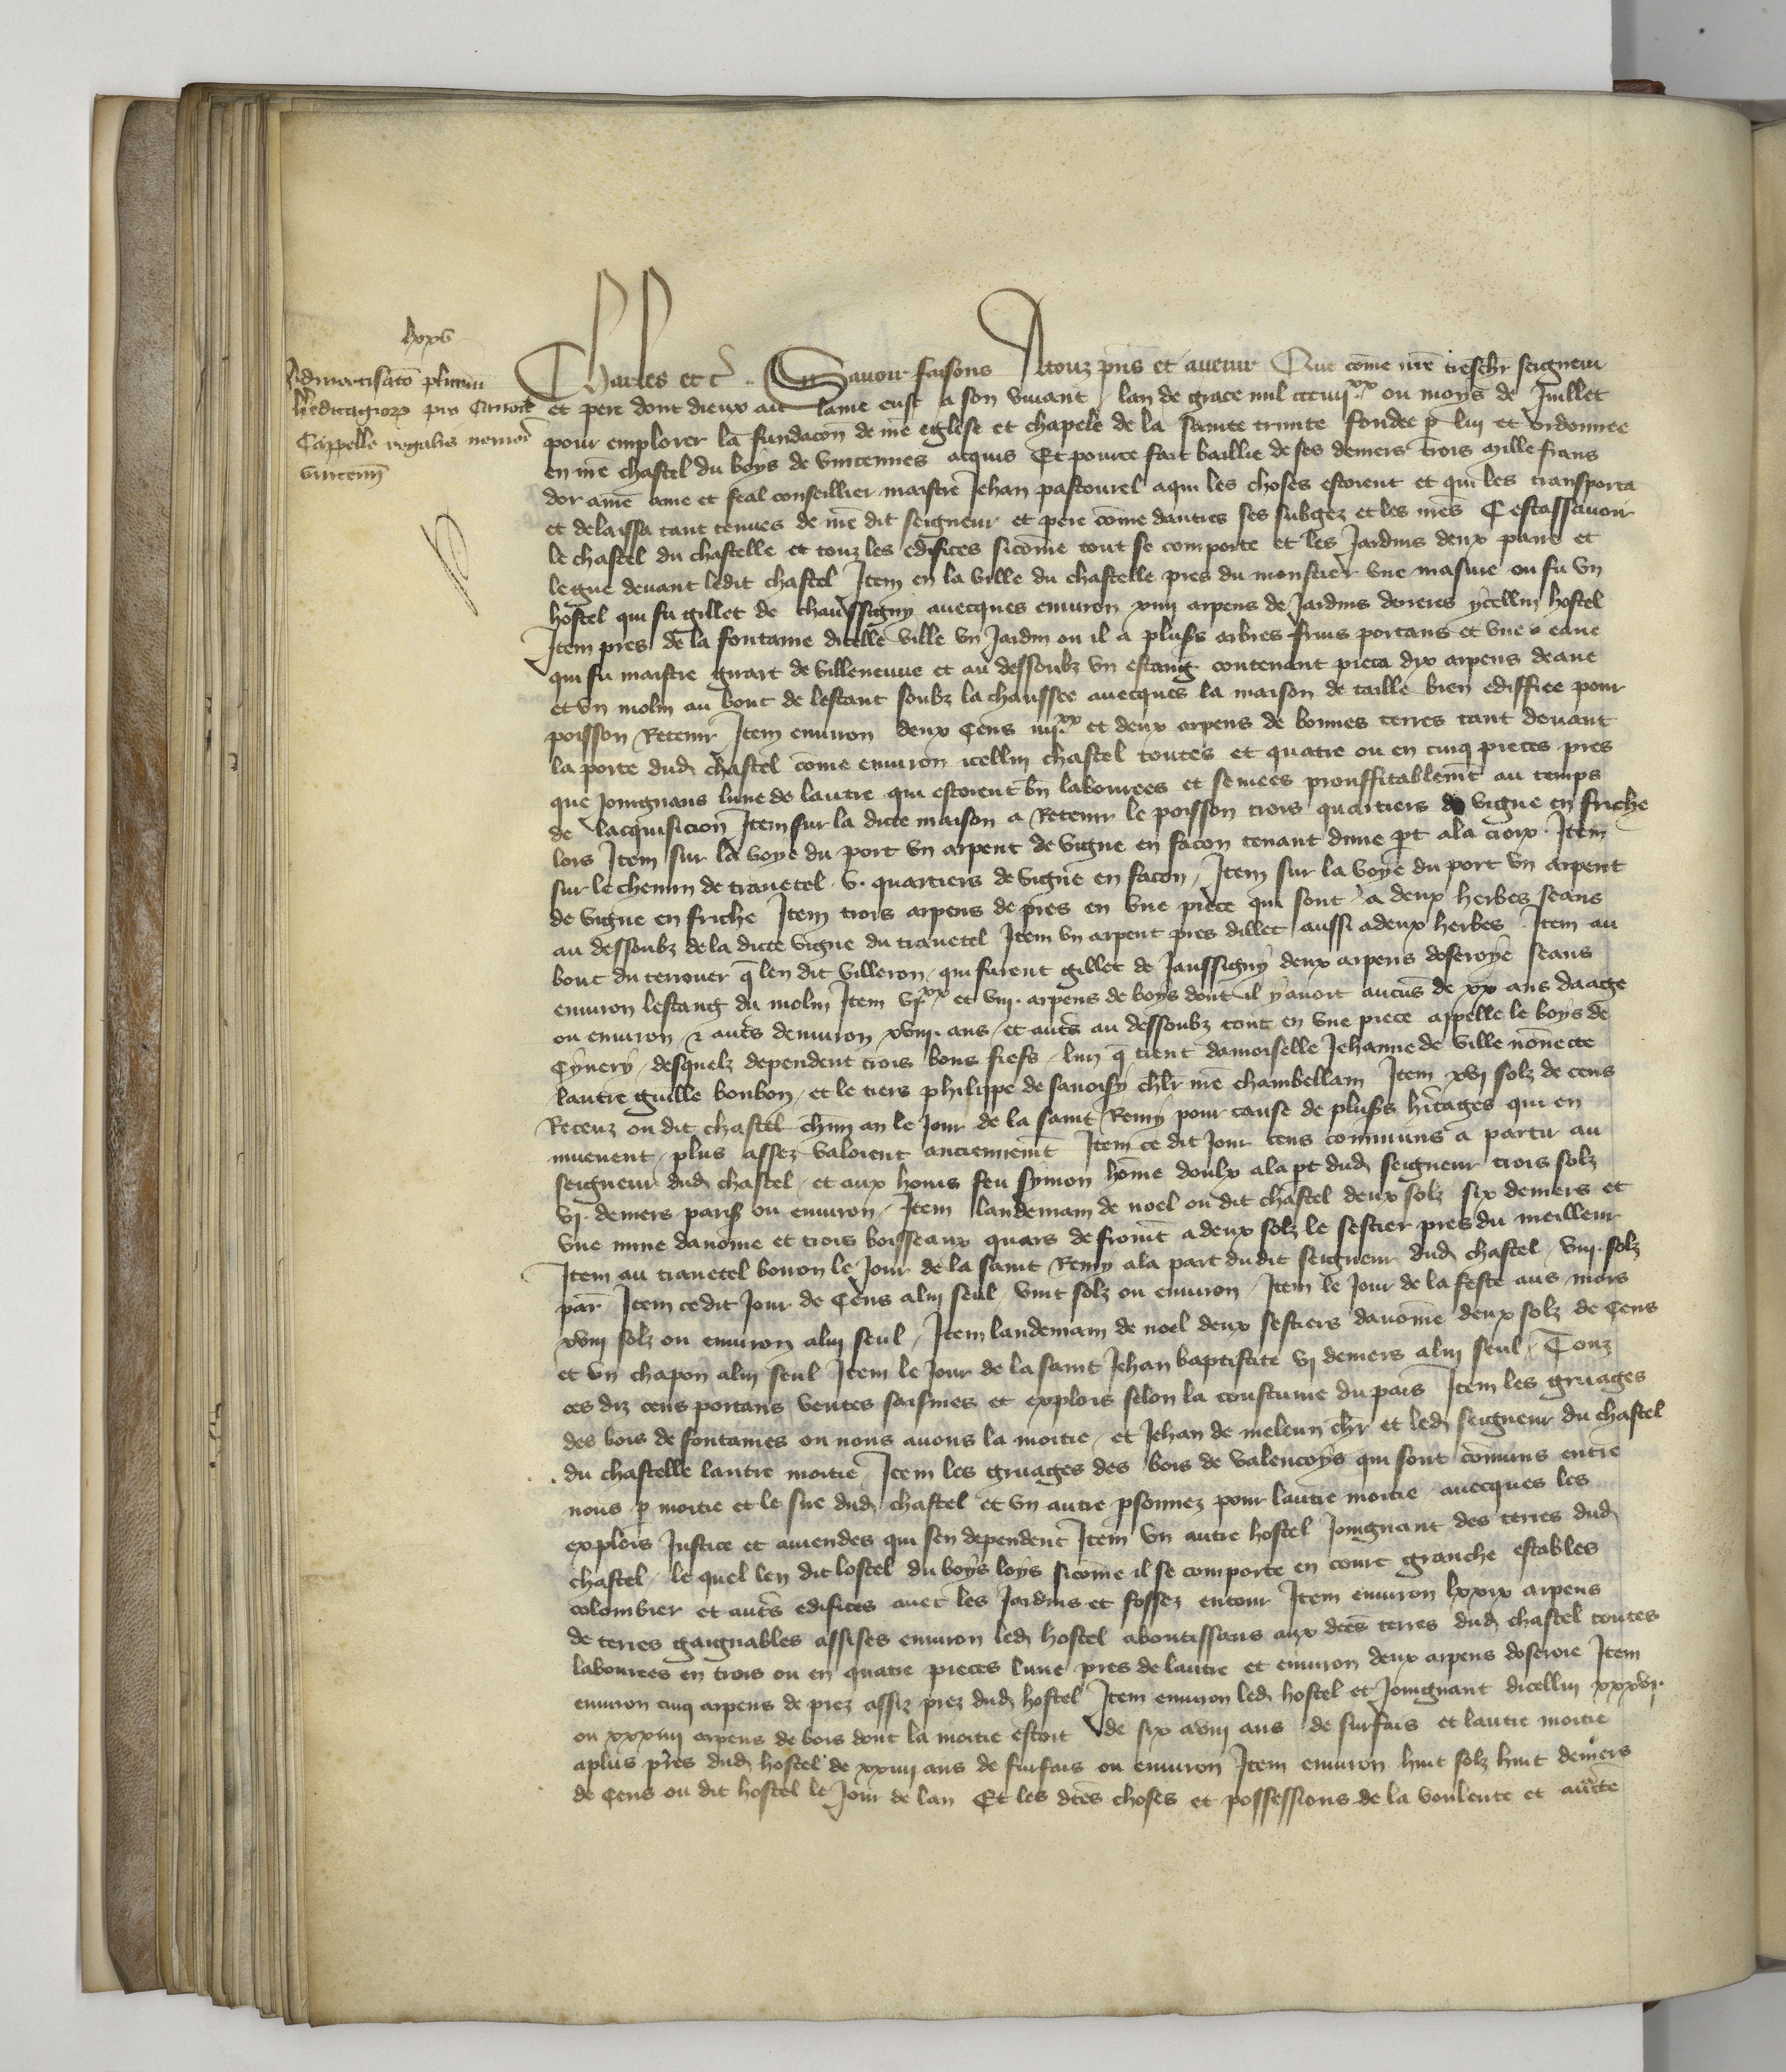 lxxv
Admortisatō plurm̄
hereditagiorꝝ pro Canoīc̄
Cappelle regalis nemor̄
vincenn̄
Charles etc̄. Savoir faisons A touz p̄ns et avenir Que cōme nr̄e treschr̄ seigneur
et pere dont dieux ait lame eust a son vivant lan de grace mil ccc iiijˣˣ ou moys de Juillet
pour emploier la fundacōn de nr̄e eglise et chapele de la sainte trinite fondee p̄ luy et ordonnee
en nr̄e chastel du boys de vincennes acquis Et pource fait baillie de ses deniers trois mille frans
dor a nr̄e ame et feal conseillier maistre Jehan pastourel aqui les choses estoient et qui les transporta
et delaissa tant tenues de nr̄e dit seigneur et pere cōme dautres ses subgez et les nr̄es Cestassavoir
le chastel du chastelle et touz les edifices sicōme tout se comporte et les Jardins deux pans et
legue devant ledit chastel Item en la ville du chastelle pres du monstier une masure ou fu un
hostel qui fu gillet de chaussigny avecques environ xiiij arpens de Jardins derrieres ycelluy hostel
Item pres de la fontaine dicelle ville un Jardin ou il a plusrs arbres fruis portans et une eaue
qui fu maistre girart de villeneuve et au dessoubz un estang contenant pieca dix arpens deaue
et un molin au bout de lestant soubz la chaussee avecques la maison de taille bien ediffiee pour
poisson Retenir Item environ deux Cens iiijˣˣ et deux arpens de bonnes terres tant devant
la porte dud chastel cōme environ icelluy chastel toutes et quatre ou en cinq pieces pres
que Joingnans lune de lautre qui estoient bn̄ labourees et semees prouffitablemt̄ au temps
de lacquisicion Item sur la dicte maison a Retenir le poisson trois quartiers de vigne en friche
lors Item sur la voye du port un arpent de vigne en facon tenant dune pt ala croix. Item
sur le chemin de travetel .v. quartiers de vigne en facon, Item sur la voye du port un arpent
de vigne en friche Item trois arpens de pres en une piece qui sont a deux herbes seans
au dessoubz dela dicte vigne du travetel Item un arpent pres dillet aussi adeux herbes Item au
bout du terrouer q̄ len dit villeron, qui furent gillet de Jaussigny deux arpens doseroye seans
environ lestang du molin Item vjˣˣ et viij. arpens de boys dont il y avoit aucūs de xx ans daage
ou environ, & aut̄s denviron xviij. ans, et aut̄s au dessoubz tout en une piece appelle le boys de
Cynery, desquelz dependent trois bons fiefs, lun q̄ tient damoiselle Jehanne de ville nōnecte
lautre guille bonbon, et le tiers philippe de savoisy chlr̄ nr̄e chambellam Item xvj solz de cens
Receuz ou dit chastel chūn an le Jour de la saint Remy pour cause de plusrs hr̄itages qui en
muevent, plus assez valoient anciennemt̄ Item ce dit Jour cens communs a partir au
seigneur dud chastel, et aux hoirs feu symon hōme doulx ala pt dud seigneur trois solz
vj. deniers paris ou environ, Item landemain de noel ou dit chastel deux solz six deniers et
une mine davoine et trois boisseaux quars de fromt̄ a deux solz le sestier pres du meilleur
Item au travetel bouon le Jour de la saint Remy ala part dudit seigneur dud chastel, viij. solz
par̄ Item cedit Jour de Cens aluy seul, vint solz ou environ, Item le Jour de la feste aus mors
xviij solz ou environ aluy seul, Item landemain de noel deux sestiers davoine deux solz de Cens
et un chapon aluy seul Item le Jour de la saint Jehan baptiste vj deniers aluy seul, Touz
ces diz cens portans ventes saisines et explois selon la coustume du pais Item les gruages
des bois de fontaines ou nous avons la moitie, et Jehan de meleun chr̄ et led seigneur du chastel
du chastelle lautre moitie, Item les gruages des bois de valencoys qui sont cōmuns entre
nous p̄ moitie et le sire dud chastel et un autre p̄sonnez pour lautre moitie, avecques les
explois Justice et amendes qui sen dependent Item un autre hostel Joingnant des terres dud
chastel, le quel len dit lostel du boys loys sicōme il se comporte en court granche estables
colombier et aut̄s edifices avec les Jardins et fossez entour Item environ lxxix arpens
de terres gaignables assises environ led hostel aboutissans aux dc̄es terres dud chastel toutes
labourees en trois ou en quatre pieces lune pres de lautre et environ deux arpens doseroie Item
environ cinq arpens de prez assiz prez dud hostel Item environ led hostel et Joingnant dicelluy xxxvj.
ou xxxviij arpens de bois dont la moitie estoit de six aviij ans de surfais et lautre moitie
aplus pres dud hostel de xxiiij ans de surfais ou environ Item environ huit solz huit deniers
de Cens ou dit hostel le Jour de lan Et les dc̄es choses et possessions de la voulente et auc̄te